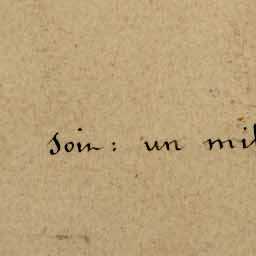 Soin: un mil